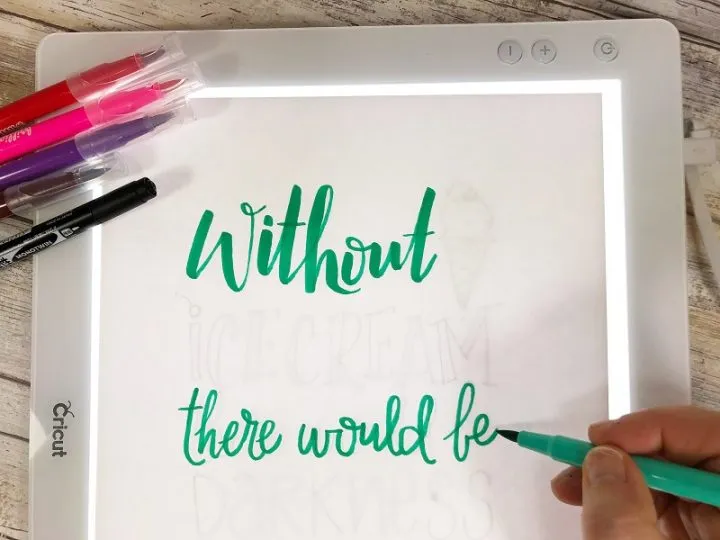 Without
iCE CREAM
there would be
DARKNESS
Cricut
MONOTWIN